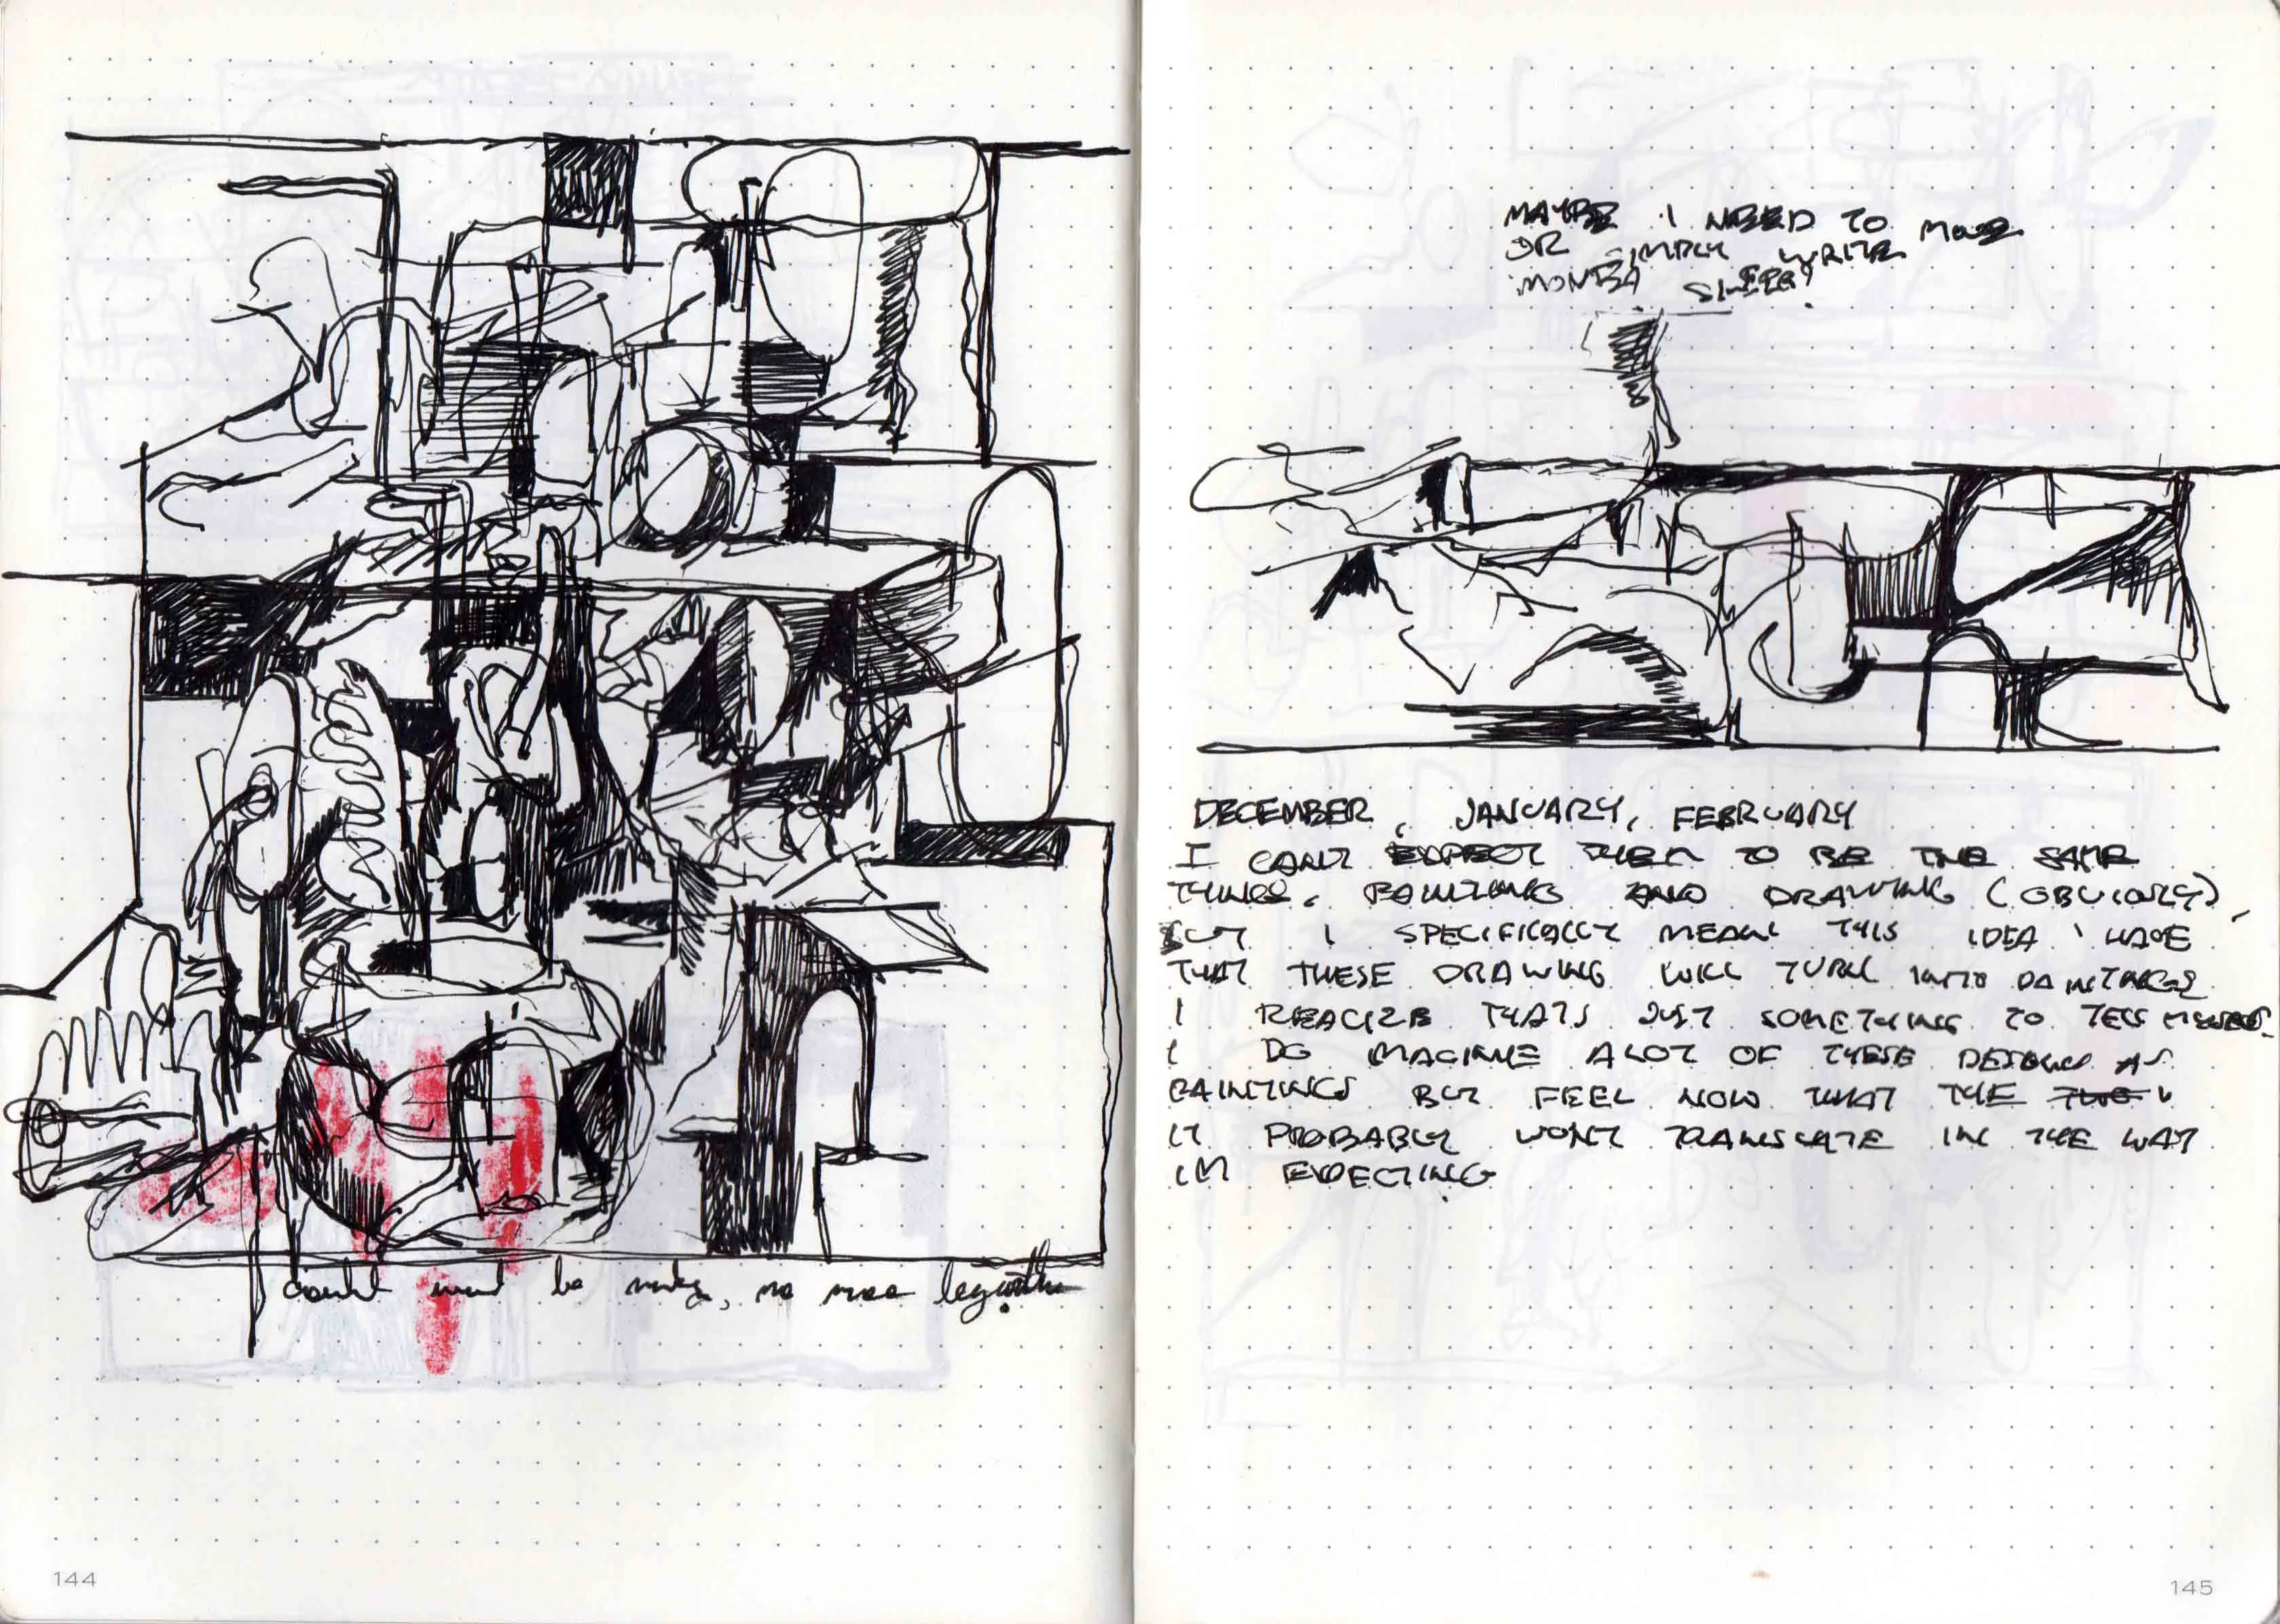 be    , no more
144
MAYBE I NEED TO MOVE
OR SIMPLY WRITE
SLEEP?
DECEMBER, JANUARY, FEBRUARY
I CANT EXPECT THEM TO BE THE SAME
THINGS, PAINTING AND DRAWING (OBVIOUSLY),
BUT I SPECIFICALLY MEAN THIS IDEA I HAVE
THAT THESE DRAWING WILL TURN INTO PAINTINGS
I REALIZE THATS JUST SOMETHING TO TELL MYSELF.
I DO IMAGINE ALOT OF THESE DESIGNS AS
PAINTINGS BUT FEEL NOW THAT THE
IT PROBABLY WONT TRANSLATE IN THE WAY
IM EXPECTING
145